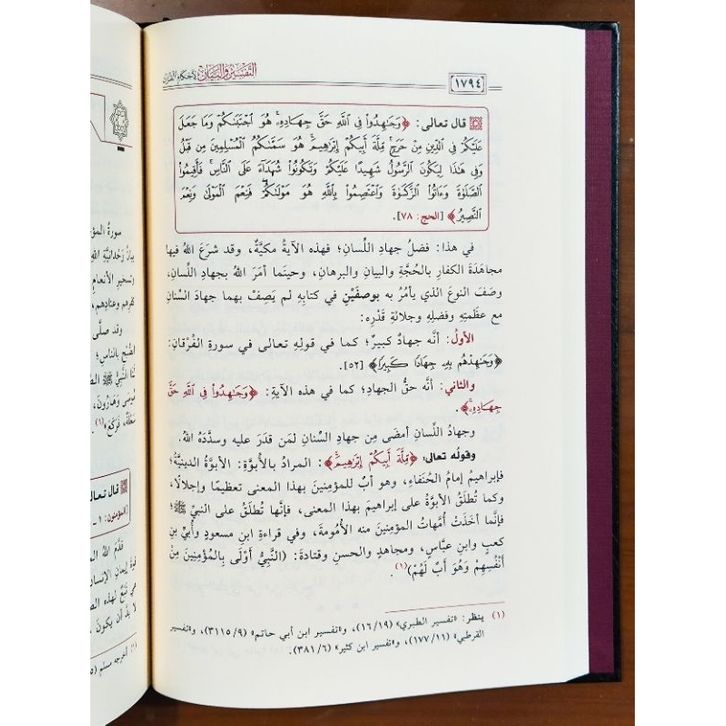 التفسير والبيان لأحكام القرآن
[١٧٩٤]
قال تعالى: ﴿وَجَٰهِدُوا۟ فِى ٱللَّهِ حَقَّ جِهَادِهِۦ ۚ هُوَ ٱجْتَبَىٰكُمْ وَمَا جَعَلَ
عَلَيْكُمْ فِى ٱلدِّينِ مِنْ حَرَجٍ ۚ مِّلَّةَ أَبِيكُمْ إِبْرَٰهِيمَ ۚ هُوَ سَمَّىٰكُمُ ٱلْمُسْلِمِينَ مِن قَبْلُ
وَفِى هَٰذَا لِيَكُونَ ٱلرَّسُولُ شَهِيدًا عَلَيْكُمْ وَتَكُونُوا۟ شُهَدَآءَ عَلَى ٱلنَّاسِ ۚ فَأَقِيمُوا۟
ٱلصَّلَوٰةَ وَءَاتُوا۟ ٱلزَّكَوٰةَ وَٱعْتَصِمُوا۟ بِٱللَّهِ هُوَ مَوْلَىٰكُمْ ۖ فَنِعْمَ ٱلْمَوْلَىٰ وَنِعْمَ
ٱلنَّصِيرُ﴾ [الحج: ٧٨].
في هذا: فضلُ جهادِ اللسانِ؛ فهذه الآيةُ مكيَّةٌ، وقد شرَعَ اللهُ فيها
مجاهَدَةَ الكفارِ بالحُجَّةِ والبيانِ والبرهانِ، وحينَما أمَرَ اللهُ بجهادِ اللسانِ،
وصَفَ النوعَ الذي يأمُرُ به بوصفَيْنِ في كتابِهِ لم يَصِفْ بهما جهادَ السِّنانِ
مع عظَمَتِهِ وفضلِهِ وجلالةِ قَدْرِه:
الأولُ: أنَّه جهادٌ كبيرٌ؛ كما في قولِهِ تعالى في سورةِ الفُرْقانِ:
﴿وَجَٰهِدْهُم بِهِۦ جِهَادًا كَبِيرًا﴾ [٥٢].
والثاني: أنه حقُّ الجهادِ؛ كما في هذه الآيةِ: ﴿وَجَٰهِدُوا۟ فِى ٱللَّهِ حَقَّ
جِهَادِهِۦ ۚ﴾.
وجهادُ اللسانِ أمضَى مِن جهادِ السِّنانِ لمَن قدَرَ عليه وسدَّدَهُ اللهُ.
وقولُه تعالى: ﴿مِّلَّةَ أَبِيكُمْ إِبْرَٰهِيمَ ۚ﴾: المرادُ بالأبُوَّةِ: الأبوَّةُ الدينيَّةُ؛
فإبراهيمُ إمامُ الحُنَفاءِ، وهو أبٌ للمؤمِنينَ بهذا المعنى تعظيمًا وإجلالًا،
وكما تُطلَقُ الأبوَّةُ على إبراهيمَ بهذا المعنى، فإنَّها تُطلَقُ على النبيِّ ﷺ؛
فإنَّما أخَذَتْ أُمَّهاتُ المؤمنينَ منه الأُمُومةَ، وفي قراءةِ ابنِ مسعودٍ وأُبيِّ بنِ
كعبٍ وابنِ عبَّاسٍ، ومجاهدٍ والحسنِ وقتادةَ: (النَّبِيُّ أَوْلَى بِالْمُؤْمِنِينَ مِنْ
أَنْفُسِهِمْ وَهُوَ أَبٌ لَهُمْ)(١).
(١) ينظر: «تفسير الطبري» (١٦/١٩)، و«تفسير ابن أبي حاتم» (٣١١٥/٩)، و«تفسير
القرطبي» (١٧٧/١١)، و«تفسير ابن كثير» (٣٨١/٦).
سورةُ المؤ
بيانُ وَحْدانيَّةِ اللهِ
وتسخيرِ الأنعامِ
كفرِهِم وعنادِهم،
وقد صلَّى
الصُّبْحَ بالناسِ؛
النَّبِيُّ ﷺ
مُوسَى وَهَارُونَ،
سَعْلَةٌ، فَرَكَعَ»(١).
قال تعالى
[المؤمنون: ١ -
قدَّم اللهُ
إيمانِ الإنسانِ
لهذه
لا بدَّ أن يكونَ
(١) أخرجه مسلم